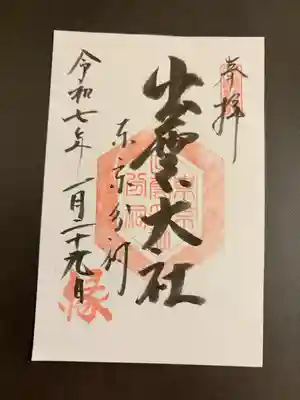 奉拝
出雲大社
東京分祠
令和七年 一月二十九日
縁